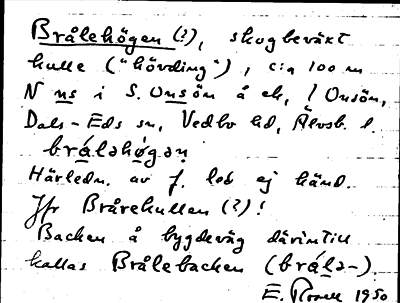 Brålehögen (?), skogbeväxt
kulle ("hövding"), c:a 100 m
N ns i S. Unsön å ek, l Onsön,
Dals-Eds sn, Vedbo hd, Älvsb. l.
brálǝhø̀gǝn
Härledn. av f. led ej känd.
Jfr Brårekullen (?)!
Backen å bygdeväg därintill
kallas Brålebacken (brálǝ-).
E. 1950